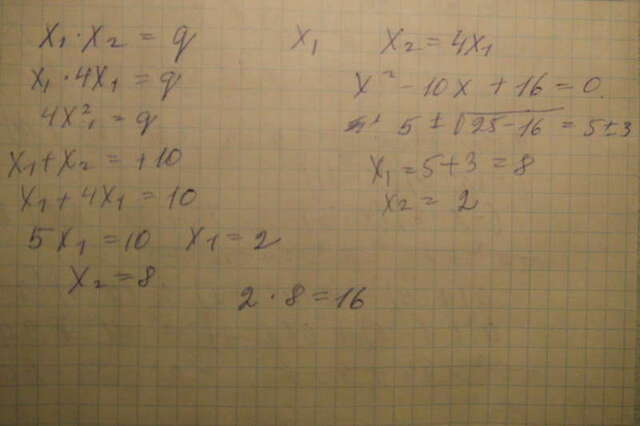 x₁ · x₂ = q
x₁ · 4x₁ = q
4x₁² = q
x₁ + x₂ = +10
x₁ + 4x₁ = 10
5x₁ = 10 x₁ = 2
x₂ = 8
2 · 8 = 16
x₁ x₂ = 4x₁
x² - 10x + 16 = 0.
5 ± √25-16 = 5±3
x₁ = 5+3 = 8
x₂ = 2